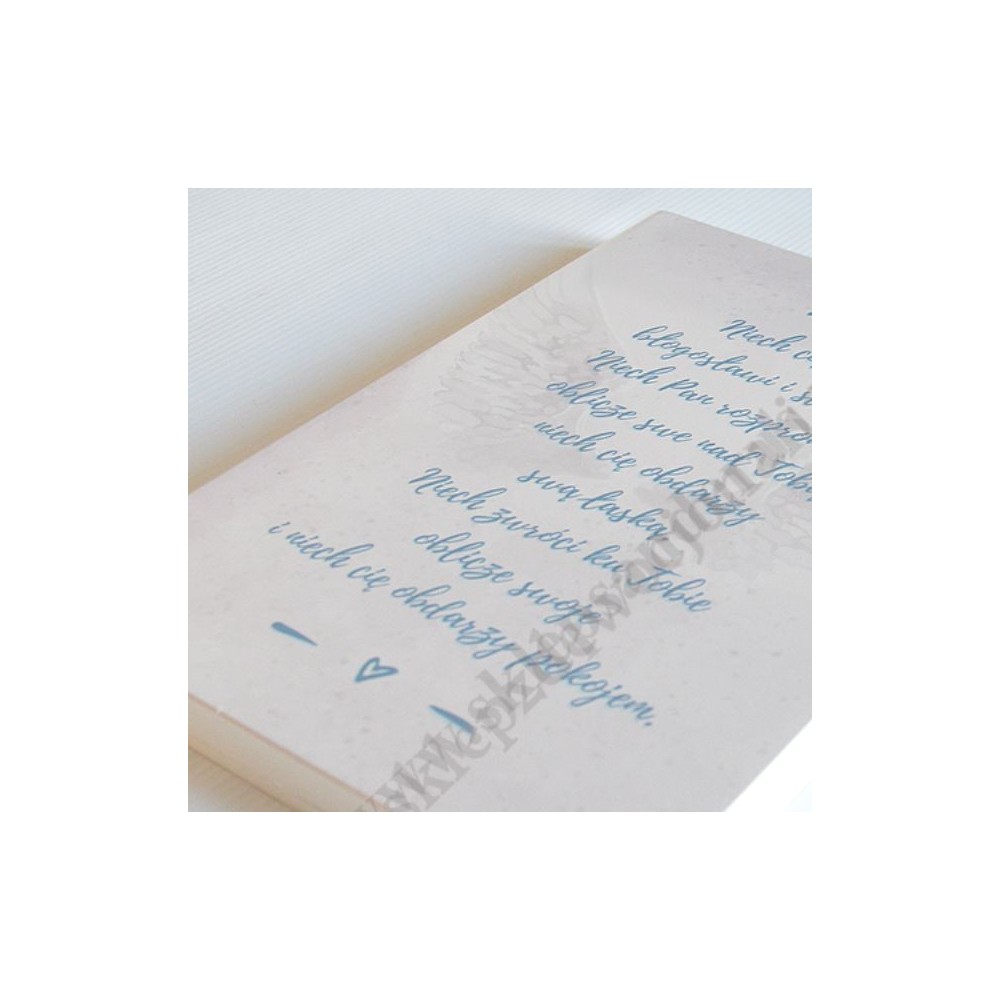 Niech
błogosławi i
Niech Pan
oblicze swe nad
niech cię obdarzy
swą łaską
Niech zwróci ku Tobie
oblicze swoje
i niech cię obdarzy pokojem.